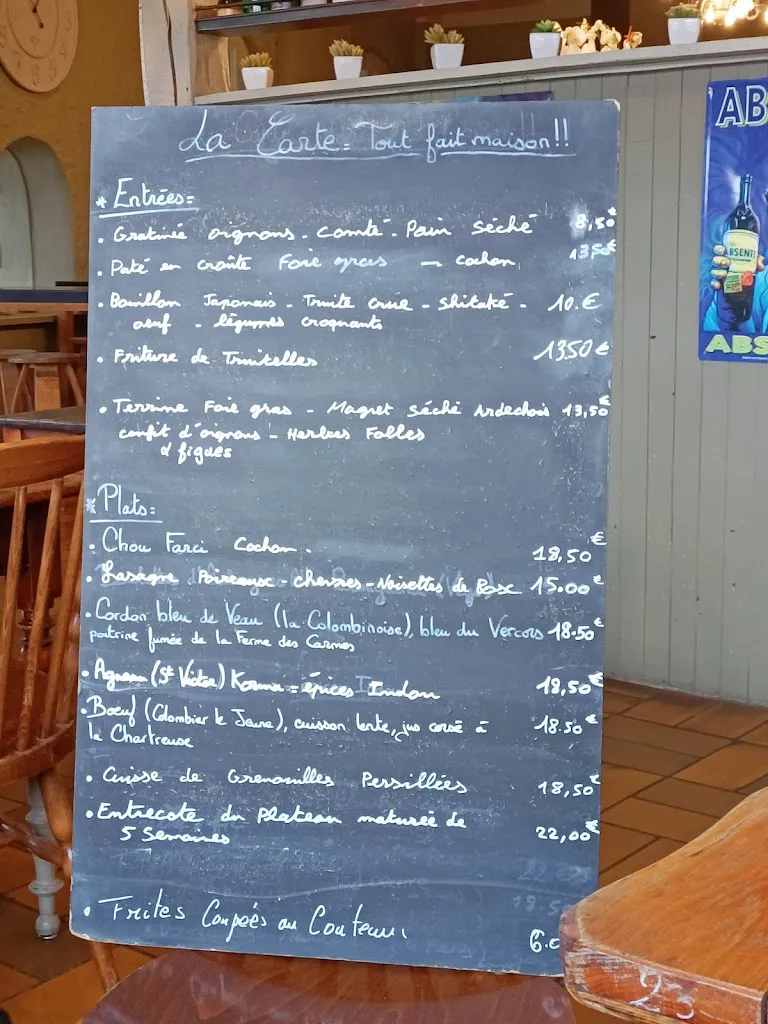 La Carte - Tout fait maison !!
* Entrées =
. Gratinée oignons - comté - Pain séché 8,50€
. Paté en croûte Foie gras - cochon 13,50€
. Bouillon Japonais - Truite crue - shitaké - 10.€
oeuf - légumes croquants
. Friture de Truitelles 13.50€
. Terrine Foie gras - Magret séché Ardechois 13,50€
confit d'oignons - Herbes Folles
& figues
* Plats =
. Chou Farci Cochon . 18,50€
. Lasagne Poireaux - chevres - Noisettes de Bosc 15.00€
. Cordon bleu de Veau (la Colombinoise), bleu du Vercors 18.50€
poitrine fumée de la Ferme des Carmes
. Agneau (St Victor) Korma - épices Indou 18,50€
. Boeuf (Colombier le Jeune), cuisson lente, jus corsé à 18.50€
la Chartreuse
. Cuisse de Grenouilles Persillées 18,50€
. Entrecote du Plateau maturée de 22,00€
5 Semaines
. Frites Coupées au Couteau 6.0
AB
ABSENT
ABS
23